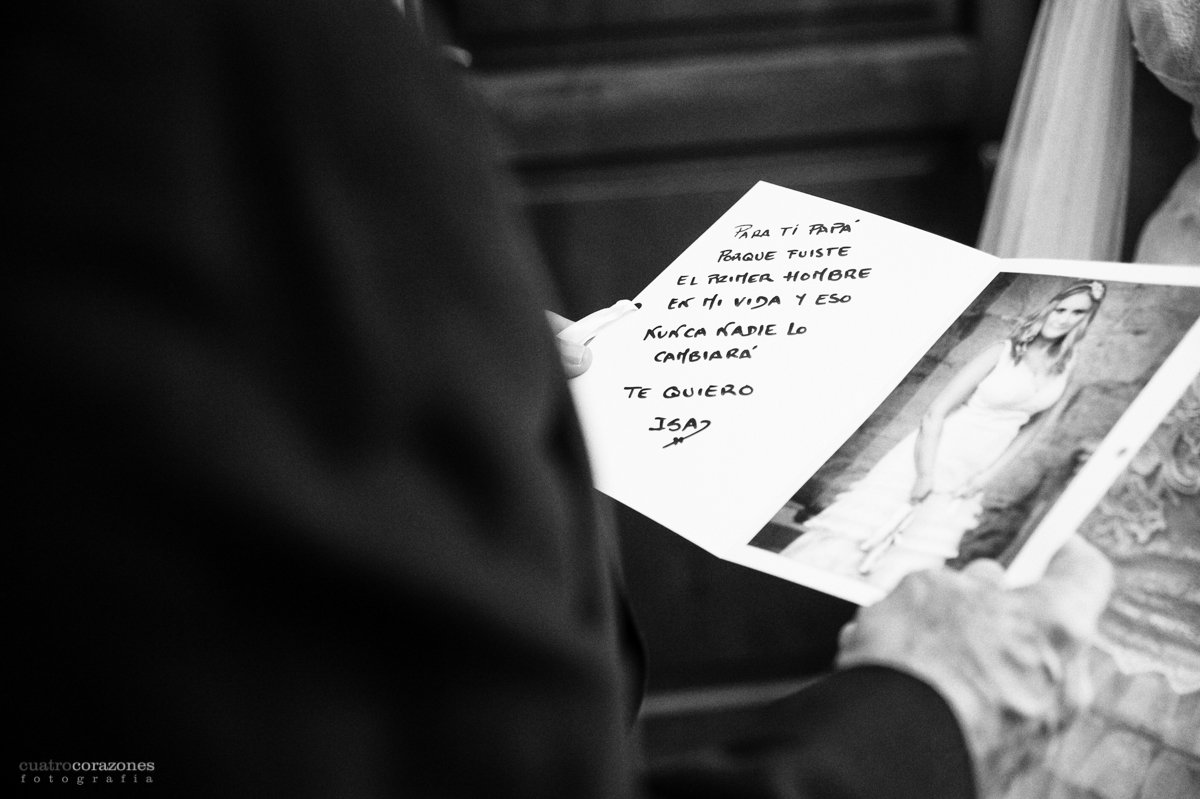 PARA TI PAPÁ
PORQUE FUISTE
EL PRIMER HOMBRE
EN MI VIDA Y ESO
NUNCA NADIE LO
CAMBIARÁ
TE QUIERO
ISA
cuatrocorazones
fotografia